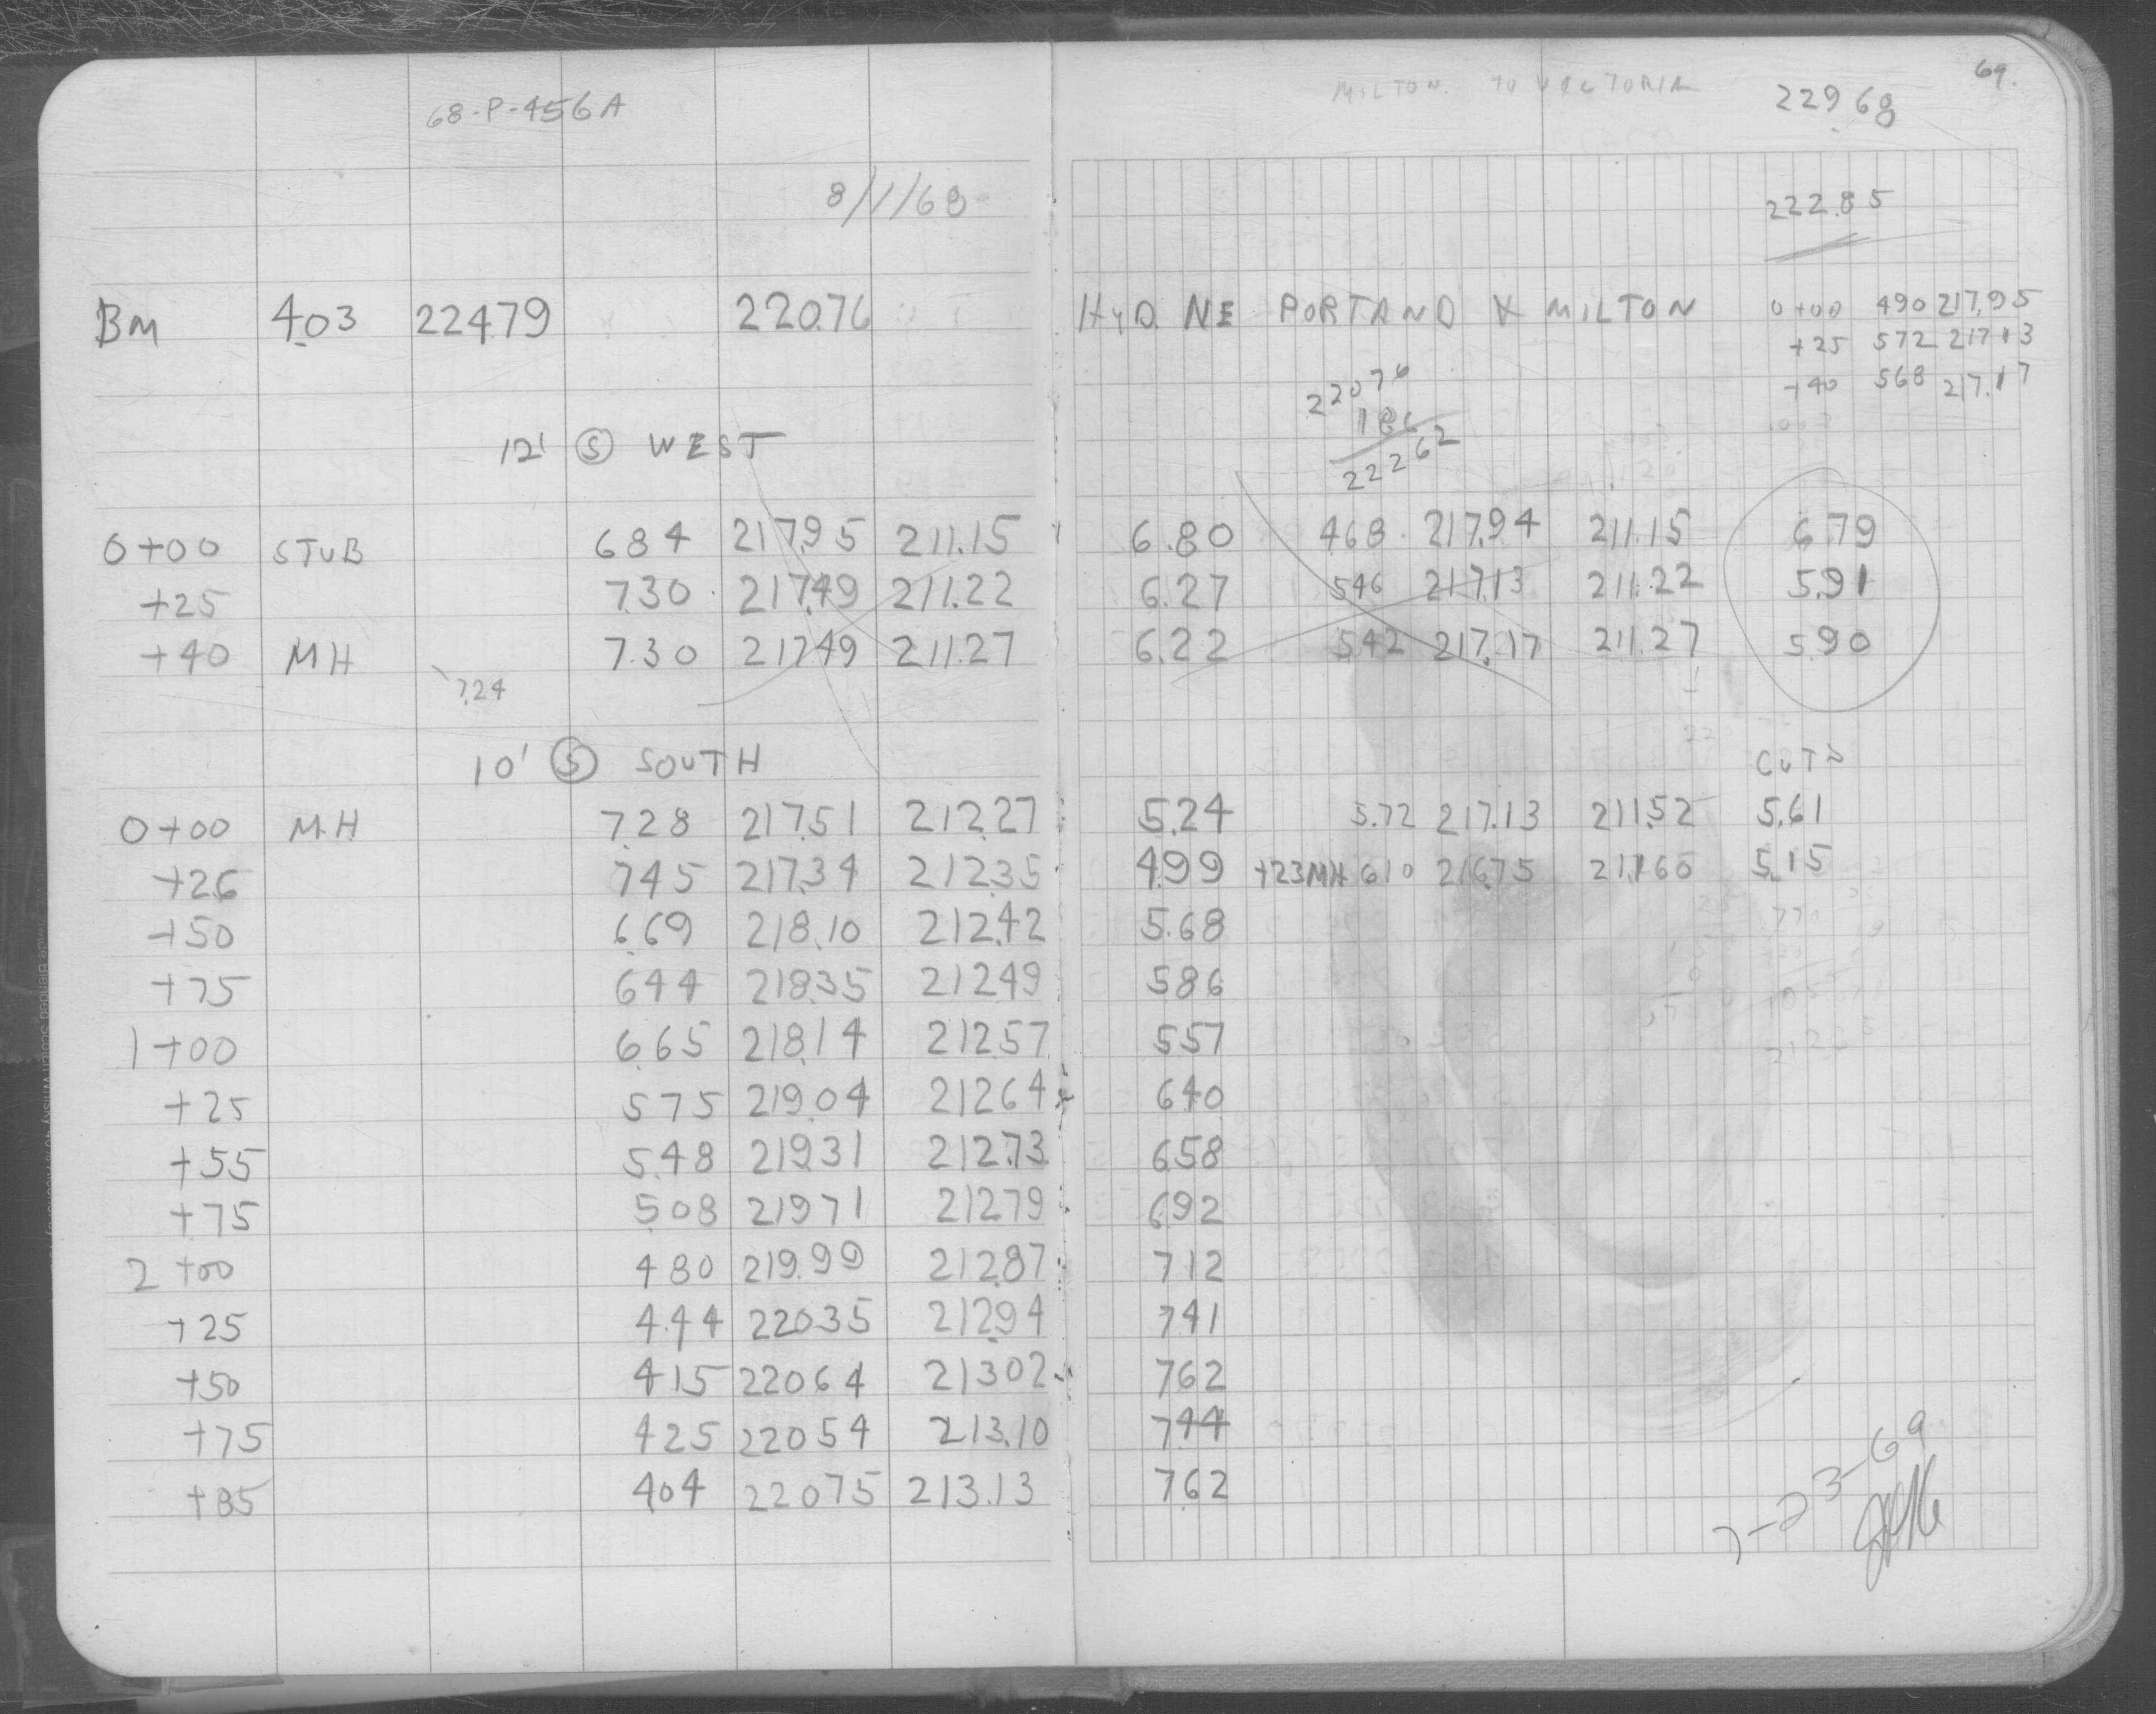 68-P-456A
8/1/68
BM 4.03 224.79 220.76
12' Ⓢ WEST
0+00 STUB 684 217.95 211.15
+25 7.30 217.49 211.22
+40 MH 7.30 217.49 211.27
7.24
10' Ⓢ SOUTH
0+00 MH 7.28 217.51 212.27
+26 7.45 217.34 212.35
+50 6.69 218.10 212.42
+75 644 218.35 212.49
1+00 6.65 218.14 212.57
+25 575 219.04 212.64
+55 5.48 219.31 212.73
+75 5.08 219.71 212.79
2+00 480 219.99 212.87
+25 4.44 220.35 212.94
+50 4.15 220.64 213.02
+75 4.25 220.54 213.10
+85 4.04 220.75 213.13
69.
MILTON TO VICTORIA
229.68
222.85
HYD. NE PORTAND & MILTON
0+00 490 217.95
+25 572 217.13
+40 568 217.17
22076
186
22262
6.80 468 217.94 211.15 6.79
6.27 546 217.13 211.22 5.91
6.22 542 217.17 211.27 5.90
CUTS
5.24 5.72 217.13 211.52 5.61
4.99 +23MH 610 216.75 211.60 5.15
5.68
586
557
640
6.58
6.92
712
7.41
762
7.44
7.62
7-23-69